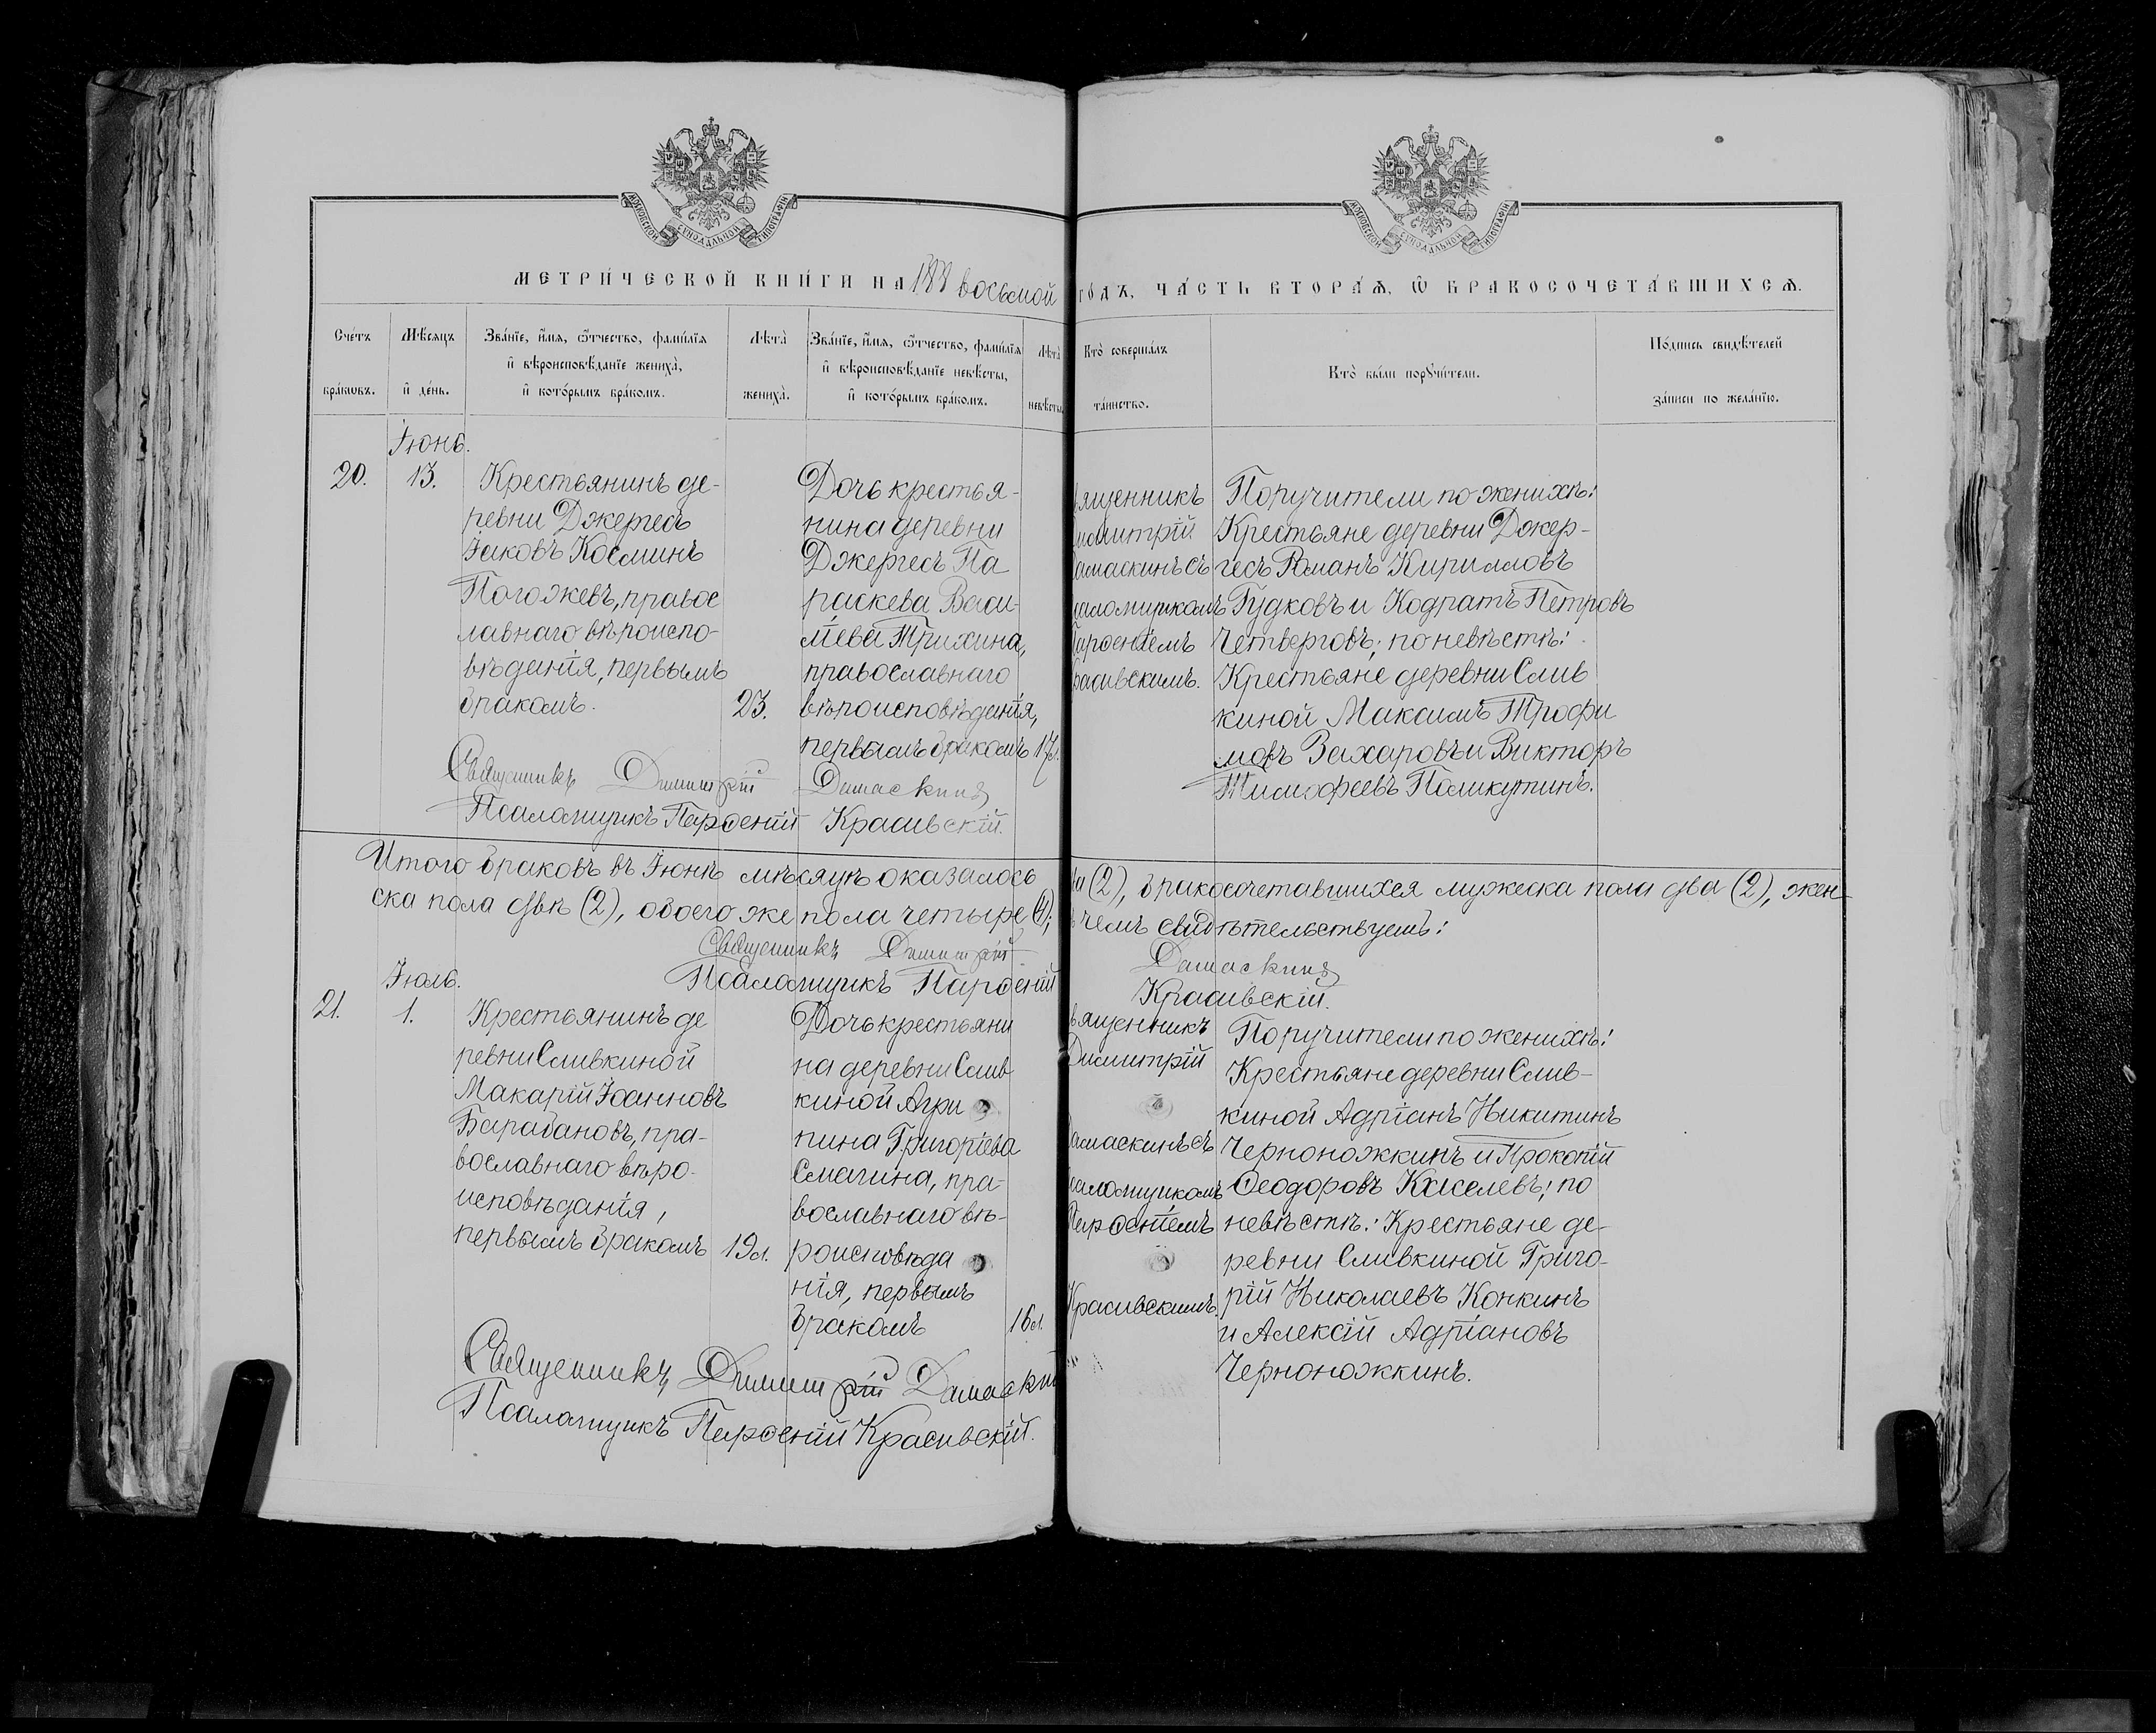 МОСКОВСКОЙ СѴНОДАЛЬНОЙ ТИПОГРАФІИ
МОСКОВСКОЙ СѴНОДАЛЬНОЙ ТИПОГРАФІИ
МЕТРИ́ЧЕСКОЙ КНИ́ГИ НА 188 восьмой ГО́ДЪ, ЧА́СТЬ ВТОРА́Ѧ, Ѽ БРАКОСОЧЕТА́ВШИХСѦ.
Сче́тъ
бра́кѡвъ.
Мѣ́сяцъ
и҆ де́нь.
Зва́нїе, и҆́мѧ, ѻ҆́тчество, фами́лїѧ
и҆ вѣроисповѣ́данїе жениха̀,
и҆ кото́рымъ бра́комъ.
Лѣта̀
жениха̀.
Зва́нїе, и҆́мѧ, ѻ҆́тчество, фами́лїѧ
и҆ вѣроисповѣ́данїе невѣ́сты,
и҆ кото́рымъ бра́комъ.
Лѣта̀
невѣ́сты.
Кто̀ соверша́лъ
та́инство.
Кто̀ бы́ли порꙋчи́тели.
По́дпись свидѣ́телей
за́писи по жела́нїю.
Іюнь.
20.
13.
Крестьянинъ де-
ревни Джергесъ
Іаковъ Косминъ
Погожевъ, правос
лавнаго вѣроиспо-
вѣданія, первымъ
бракомъ.
23.
Дочь крестья-
нина деревни
Джергесъ Па
раскева Васи-
ліева Трихина,
православнаго
вѣроисповѣданія,
первымъ бракомъ
17 л.
вященникъ
имитрій
амаскинъ съ
саломщикомъ
Парѳеніемъ
расивскимъ.
Поручители по женихѣ:
Крестьяне деревни Джер-
гесъ Романъ Кирилловъ
Гудковъ и Кодратъ Петровъ
Четверговъ; по невѣстѣ:
Крестьяне деревни Слив
киной Максимъ Трофи
мовъ Захаровъ и Викторъ
Тимофеевъ Поликутинъ.
Священникъ Димитрій Дамаскинъ
Псаломщикъ Парѳеній Красивскій.
Итого браковъ въ Іюнѣ мѣсяцѣ оказалось ва (2), бракосочетавшихся мужеска пола два (2), жен-
ска пола двѣ (2), обоего же пола четыре (4); въ чемъ свидѣтельствуемъ:
Священникъ Димитрій Дамаскинъ
Псаломщикъ Парѳеній Красивскій.
Іюль.
21.
1.
Крестьянинъ де
ревни Сливкиной
Макарій Іоанновъ
Барабановъ, пра-
вославнаго вѣро-
исповѣданія,
первымъ бракомъ
19 л.
Дочь крестьяни
на деревни Слив
киной Агри
пина Григоріева
Смагина, пра-
вославнаго вѣ-
роисповѣда
нія, первымъ
бракомъ
16 л.
вященникъ
Димитрій
амаскинъ съ
саломщикомъ
Парѳеніемъ
Красивскимъ.
Поручители по женихѣ:
Крестьяне деревни Слив-
киной Адріанъ Никитинъ
Черноножкинъ и Прокопій
Ѳеодоровъ Киселевъ; по
невѣстѣ: Крестьяне де-
ревни Сливкиной Григо-
рій Николаевъ Конкинъ
и Алексій Адріановъ
Черноножкинъ.
Священникъ Димитрій Дамаскин
Псаломщикъ Парѳеній Красивскій.